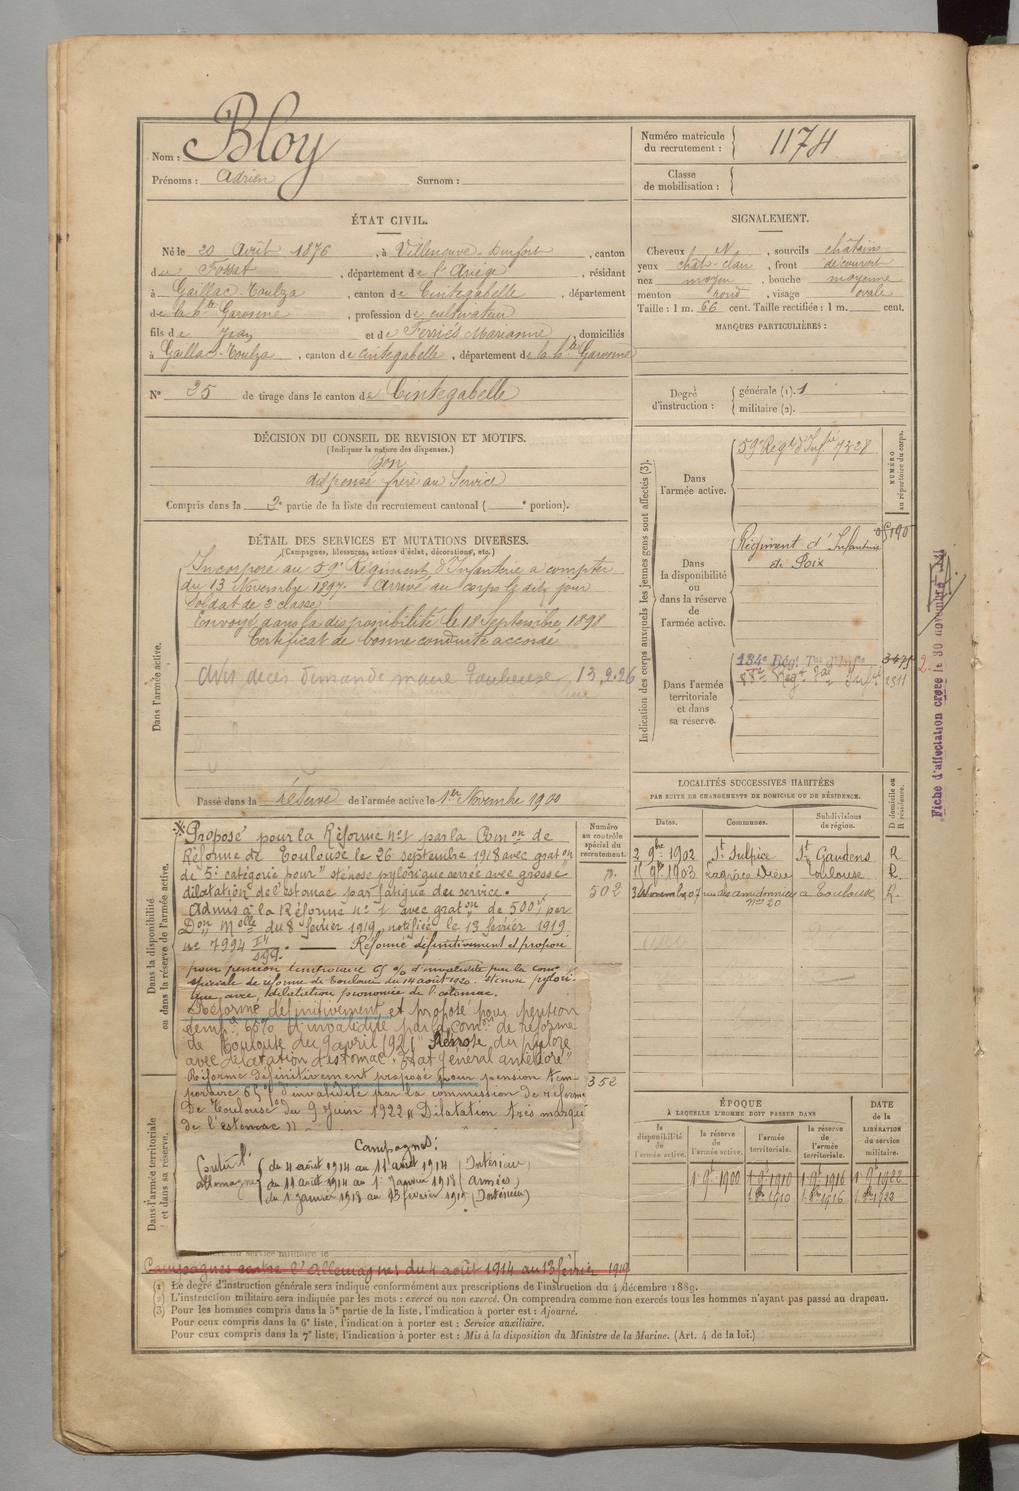 Nom : Bloy
Prénoms : Adrien Surnom :
Numéro matricule du recrutement : 1174
Classe de mobilisation :
ÉTAT CIVIL.
Né le 20 Avril 1876, à Villeneuve-Durfort, canton
de Fossat, département de l'Ariège, résidant
à Gaillac-Toulza, canton de Cintegabelle, département
de la Hte Garonne, profession de cultivateur
fils de Jean et de Ferriés Marianne, domiciliés
à Gaillac-Toulza, canton de Cintegabelle, département de la Hte Garonne
N° 25 de tirage dans le canton de Cintegabelle
SIGNALEMENT.
Cheveux N, sourcils châtains
yeux chât-clair, front découvert
nez moyen, bouche moyenne
menton rond, visage ovale
Taille : 1 m. 66 cent. Taille rectifiée : 1 m. cent.
MARQUES PARTICULIÈRES :
Degré d'instruction : générale (1). 1
militaire (2).
DÉCISION DU CONSEIL DE REVISION ET MOTIFS.
(Indiquer la nature des dispenses.)
Bon
dispensé frère au Service
Compris dans la 2e partie de la liste du recrutement cantonal ( e portion).
DÉTAIL DES SERVICES ET MUTATIONS DIVERSES.
(Campagnes, blessures, actions d'éclat, décorations, etc.)
Dans l'armée active.
Incorporé au 59e Régiment d'Infanterie à compter
du 13 Novembre 1897. Arrivé au corps le dit jour
Soldat de 2e classe
Envoyé dans la disponibilité le 18 Septembre 1898
Certificat de bonne conduite accordé
Avis décès demandé maire 13.2.26
Passé dans la réserve de l'armée active le 1er Novembre 1900
Indication des corps auxquels les jeunes gens sont affectés (3).
NUMÉRO au répertoire du corps.
Dans l'armée active.
59e Régt d'Infie 7328
Dans la disponibilité ou dans la réserve de l'armée active.
Régiment d'Infanterie
de Foix
Dans l'armée territoriale et dans sa réserve.
134e Régt Ter d'Infie
2311
Fiche d'affectation créée le 30 novembre
Dans la disponibilité ou dans la réserve de l'armée active.
Numéro au contrôle spécial du recrutement.
502
352
Proposé pour la Réforme n° 1 par la Comon de
Réforme de Toulouse le 26 septembre 1918 avec graton
de 5e catégorie pour "sténose pylorique serrée avec grosse
dilatation de l'estomac par fatigue du service.
Admis à la Réforme n° 1 avec graton de 500f par
Don Melle du 8 février 1919, notifiée le 13 février 1919
n° 7994 Réformé définitivement et proposé
pour pension temporaire 65 % d'invalidité par la Comon
spéciale de réforme de Toulouse du 14 août 1920. Sténose pylori-
que avec dilatation prononcée de l'estomac.
Réformé définitivement et proposé pour pension
temp. 65% d'invalidité par la Comon de réforme
de Toulouse du 9 avril 1921 "Sténose du pylore
avec dilatation d'estomac. État général amélioré"
Réformé définitivement proposé pour pension tem-
poraire 65% d'invalidité par la commission de réforme
de Toulouse du 9 juin 1922 "Dilatation très marquée
de l'estomac"
Dans l'armée territoriale et dans sa réserve.
Campagnes :
Contre l'Allemagne
du 4 août 1914 au 11 août 1914 (Intérieur)
du 11 août 1914 au 1er Janvier 1918 (Armées)
du 1er Janvier 1918 au 13 février 1919 (Intérieur)
Campagnes contre l'Allemagne : du 4 août 1914 au 13 février 1919
LOCALITÉS SUCCESSIVES HABITÉES
PAR SUITE DE CHANGEMENTS DE DOMICILE OU DE RÉSIDENCE.
Dates. Communes. Subdivisions de région. D domicile ou R résidence.
2 9bre 1902 St Sulpice St Gaudens R
1903 Lagrâce Dieu Toulouse R.
3 Novembre 07 rue des amidonniers n° 20 à Toulouse R.
ÉPOQUE
À LAQUELLE L'HOMME DOIT PASSER DANS
la disponibilité de l'armée active. la réserve de l'armée active. l'armée territoriale. la réserve de l'armée territoriale.
DATE de la LIBÉRATION du service militaire.
1er 9bre 1900 1er 9bre 1910 1er 9bre 1916 1er 9bre 1922
1er 8bre 1910 1er 8bre 1916 1er 8bre 1923
(1) Le degré d'instruction générale sera indiqué conformément aux prescriptions de l'instruction du 4 décembre 1889.
(2) L'instruction militaire sera indiquée par les mots : exercé ou non exercé. On comprendra comme non exercés tous les hommes n'ayant pas passé au drapeau.
(3) Pour les hommes compris dans la 5e partie de la liste, l'indication à porter est : Ajourné.
Pour ceux compris dans la 6e liste, l'indication à porter est : Service auxiliaire.
Pour ceux compris dans la 7e liste, l'indication à porter est : Mis à la disposition du Ministre de la Marine. (Art. 4 de la loi.)